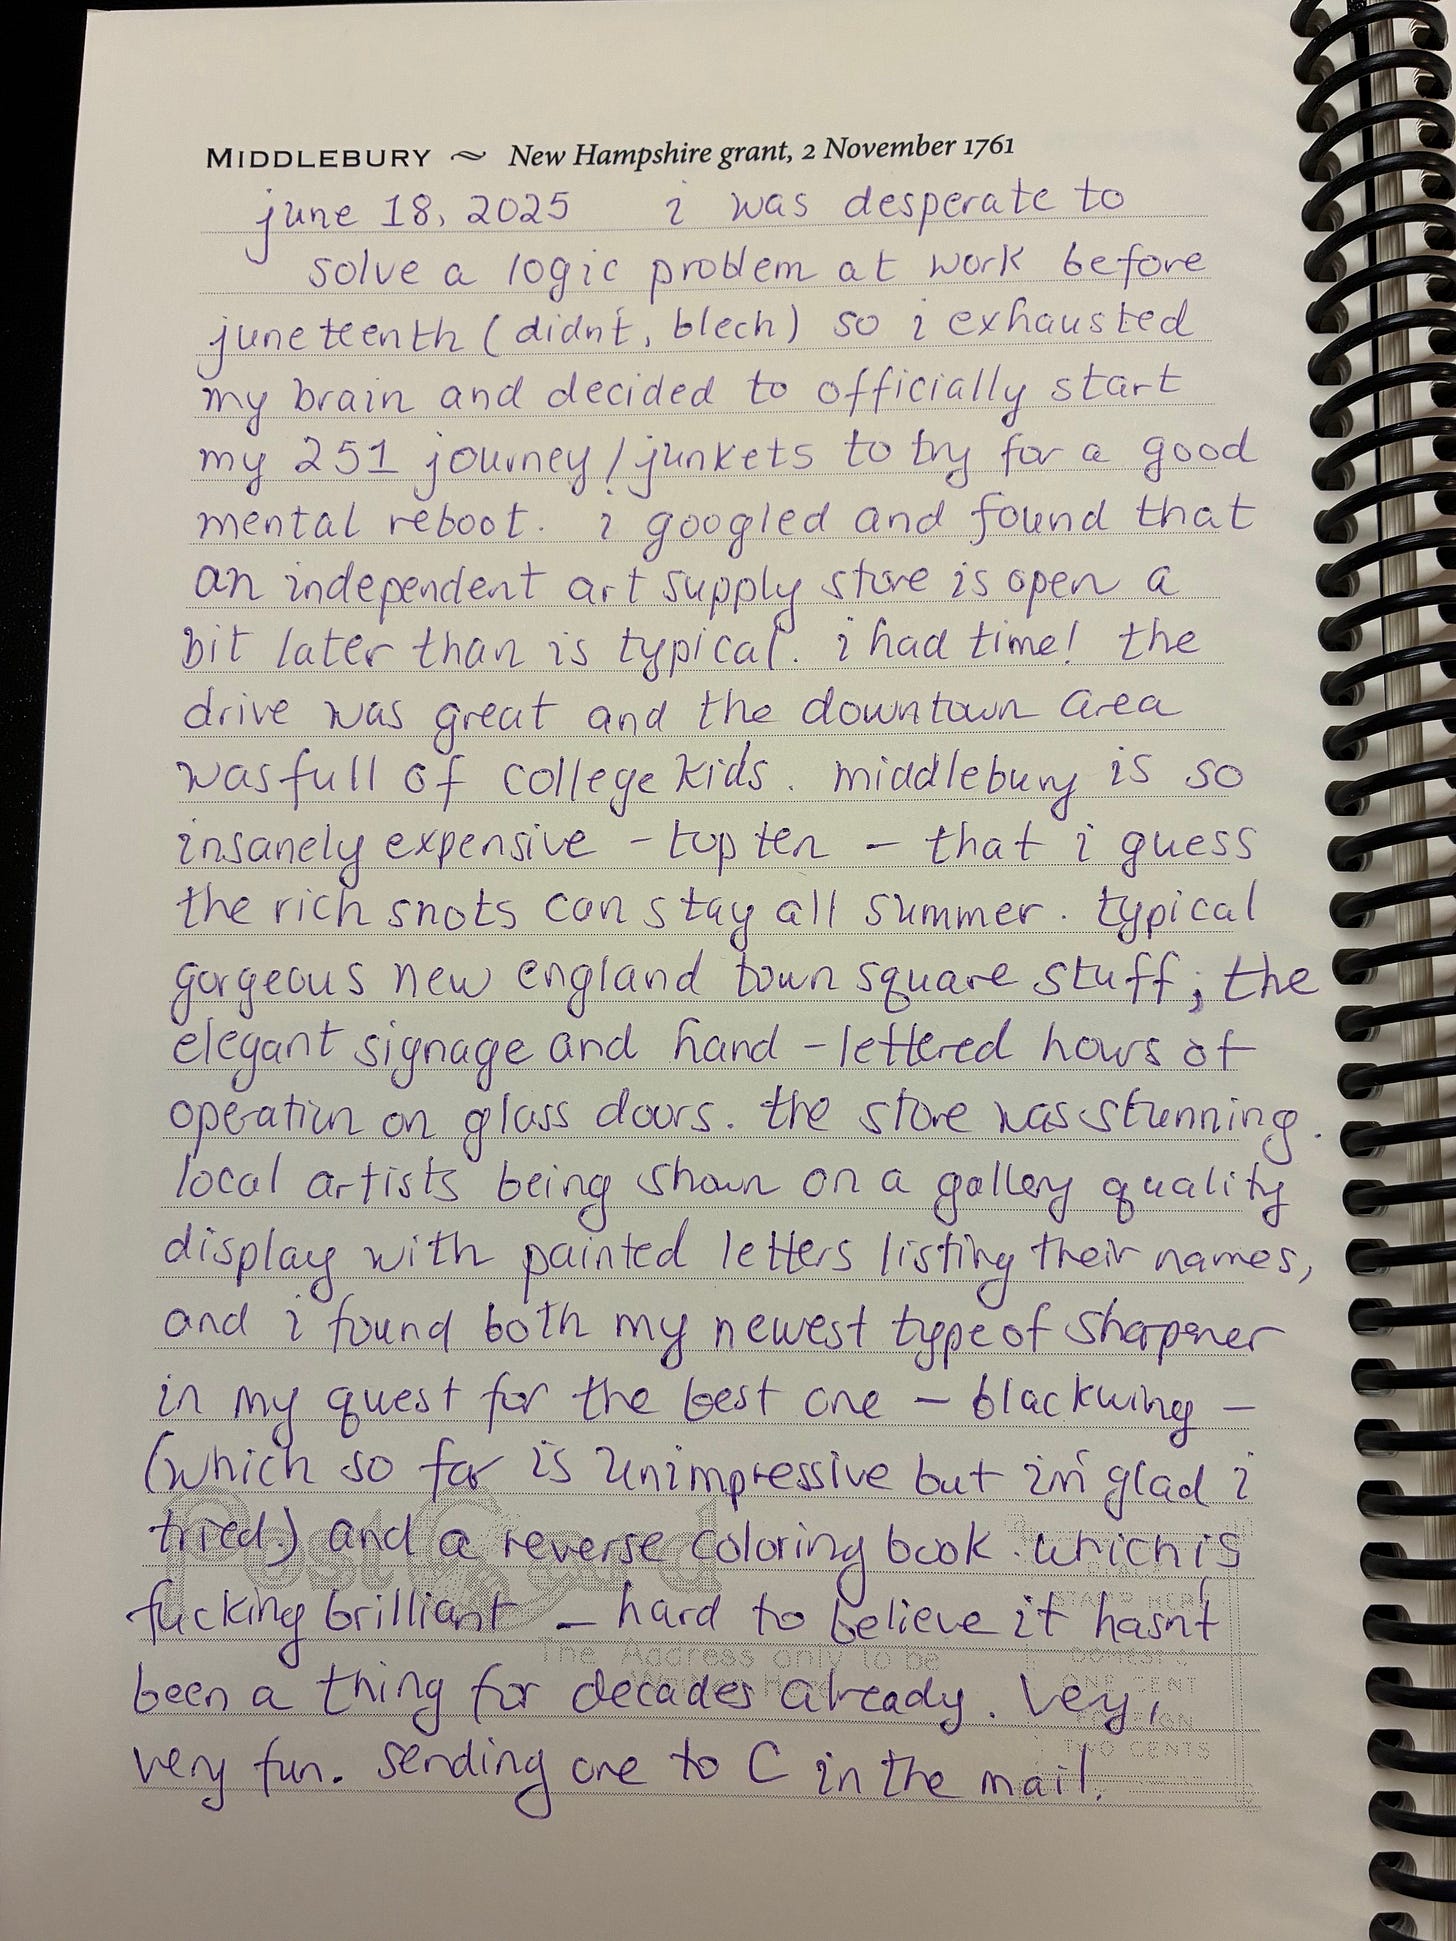 MIDDLEBURY ~ New Hampshire grant, 2 November 1761
june 18, 2025 i was desperate to
solve a logic problem at work before
juneteenth (didn't, blech) so i exhausted
my brain and decided to officially start
my 251 journey/junkets to try for a good
mental reboot. i googled and found that
an independent art supply store is open a
bit later than is typical. i had time! the
drive was great and the downtown area
was full of college kids. middlebury is so
insanely expensive - top ten - that i guess
the rich snots can stay all summer. typical
gorgeous new england town square stuff; the
elegant signage and hand-lettered hours of
operation on glass doors. the store was stunning.
local artists being shown on a gallery quality
display with painted letters listing their names,
and i found both my newest type of sharpener
in my quest for the best one - blackwing -
(which so far is unimpressive but i'm glad i
tried) and a reverse coloring book. which is
fucking brilliant - hard to believe it hasn't
been a thing for decades already. very,
very fun. sending one to C in the mail.
PostCard
STAMP HERE
The Address only to be
ONE CENT
FOREIGN
TWO CENTS